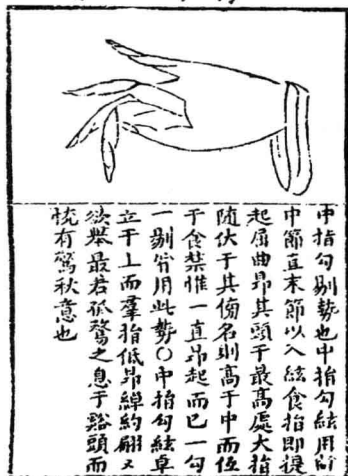 中指勾剔勢也中指勾絃用
中節直末節以入絃食指即提
起屈曲昂其頭于最高處大指
隨伏于其傍名則高于中而位
于食禁惟一直昂起而已一勾
一剔皆用此勢〇中指勾絃卓
立于上而羣指低昂綽約翩又
欲舉最若孤鶩之息于谿頭而
恍有驚秋意也